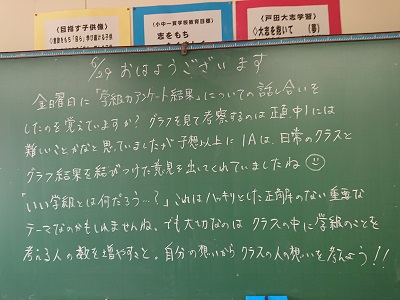 《目指す子供像》
《小中一貫学校教育目標》
志をもち
《戸田大志学習》
◇大志を抱いて (夢)
6/29 おはようございます
金曜日に「学級力アンケート結果」についての話し合いを
したのを覚えていますか？グラフを見て考察するのは正直中1には
難しいことかなと思っていましたが予想以上に1Aは、日常のクラスと
グラフ結果を結びつけた意見を出してくれていましたね
「いい学級とは何だろう…？」これはハッキリとした正解のない重要な
テーマなのかもしれませんね。でも大切なのはクラスの中に学級のことを
考える人の数を増やすこと。自分の想いからクラスの人の想いを考えよう!!